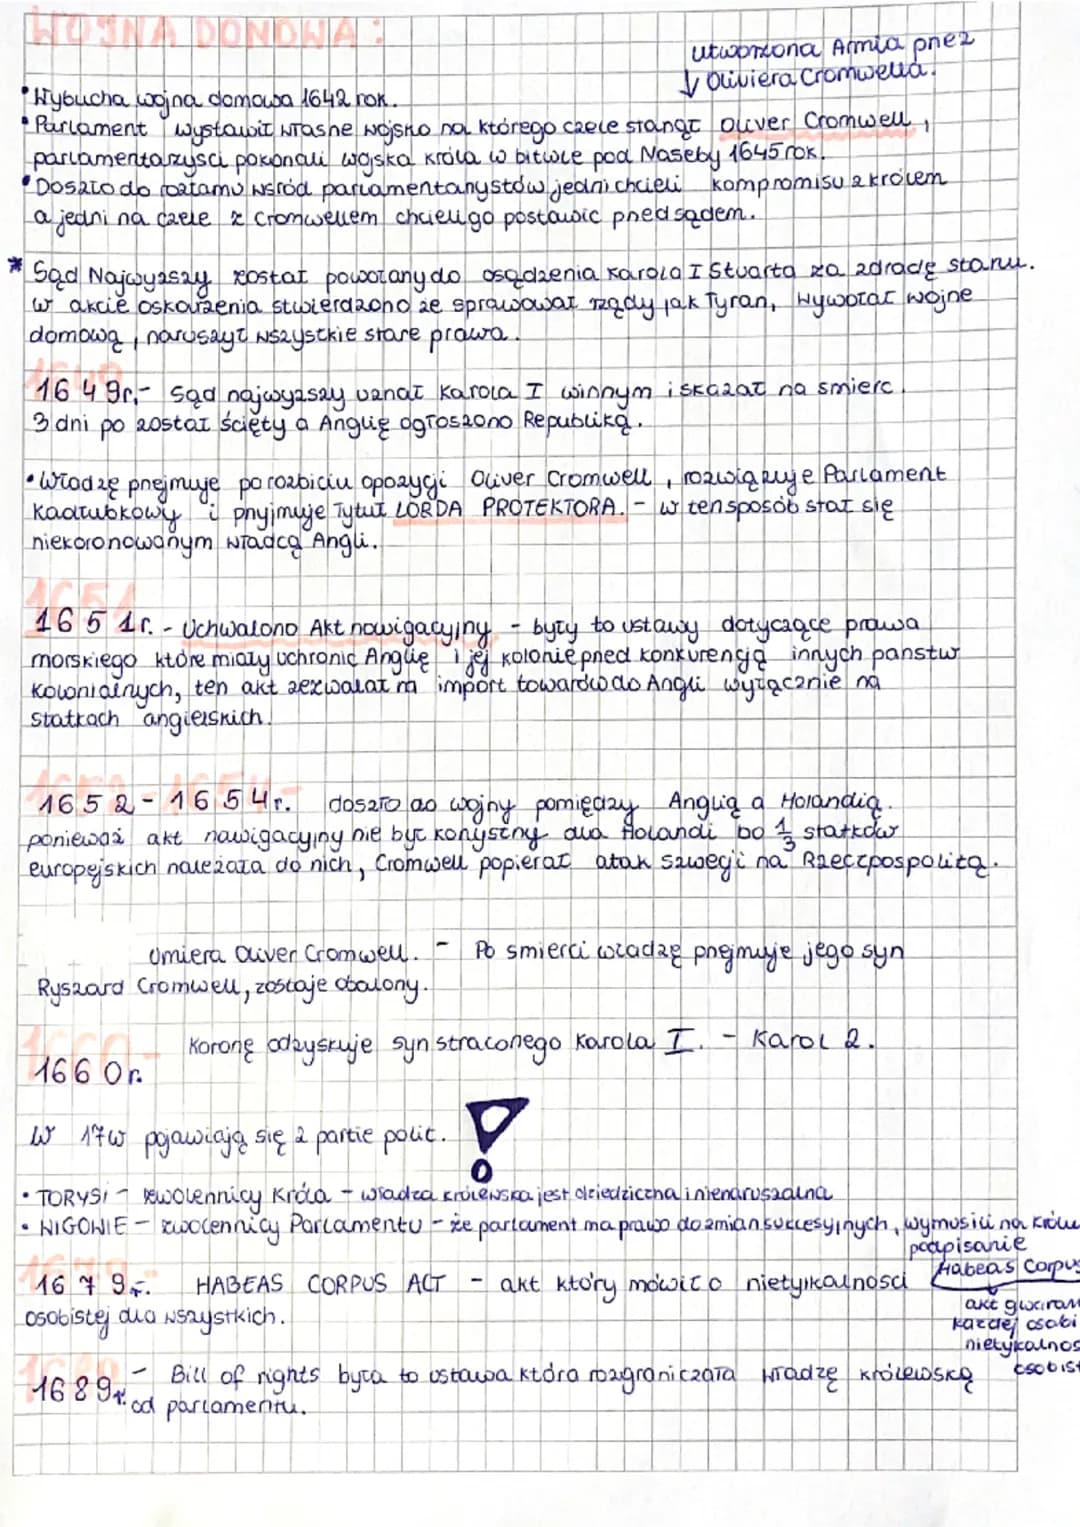 WOJNA DOMOWA:
utworzona Armia przez
↓ Oliviera Cromwella.
• Wybucha wojna domowa 1642 rok.
• Parlament wystawił własne wojsko na którego czele stanął Oliver Cromwell,
parlamentarzyści pokonali wojska króla w bitwie pod Naseby 1645 rok.
• Doszło do rozłamu wśród parlamentarzystów jedni chcieli kompromisu z królem
a jedni na czele z Cromwellem chcieli go postawić przed sądem.
* Sąd Najwyższy został powołany do osądzenia Karola I Stuarta za zdradę stanu.
w akcie oskarżenia stwierdzono że sprawował rządy jak Tyran, wywołał wojne
domową, naruszył wszystkie stare prawa.
1649r.- Sąd najwyższy uznał Karola I winnym i skazał na smierc.
3 dni po został ścięty a Anglię ogłoszono Republiką.
• Władzę przejmuje po rozbiciu opozycji Oliver Cromwell, rozwiązuje Parlament
Kadłubkowy i przyjmuje Tytuł LORDA PROTEKTORA. - w ten sposób stał się
niekoronowanym władcą Angli.
1651r. - Uchwalono Akt nawigacyjny - były to ustawy dotyczące prawa
morskiego które miały uchronić Anglię i jej kolonie przed konkurencją innych panstw
kolonialnych, ten akt zezwalał na import towarów do Angli wyłącznie na
statkach angielskich.
1652-1654r. doszło do wojny pomiędzy Anglią a Holandią.
ponieważ akt nawigacyjny nie był korzystny dla Holandi bo 1/3 statków
europejskich należała do nich, Cromwell popierał atak szwecji na Rzeczpospolitą.
Umiera Oliver Cromwell. - Po smierci władzę przejmuje jego syn
Ryszard Cromwell, zostaje obalony.
1660r. Koronę odzyskuje syn straconego Karola I. - Karol 2.
W 17w pojawiają się 2 partie polit. !
• TORYSI - zwolennicy Króla - władza królewska jest dziedziczna i nienaruszalna
• WIGOWIE - zwolennicy Parlamentu - że parlament ma prawo do zmian sukcesyjnych, wymusili na królu
podpisanie
Habeas Corpus
1679r. HABEAS CORPUS ACT - akt który mówił o nietykalności
osobistej dla wszystkich.
akt gwaran
każdej osobi
nietykalnoś
osobist
1689r. - Bill of rights była to ustawa która rozgraniczała władzę królewską
od parlamentu.